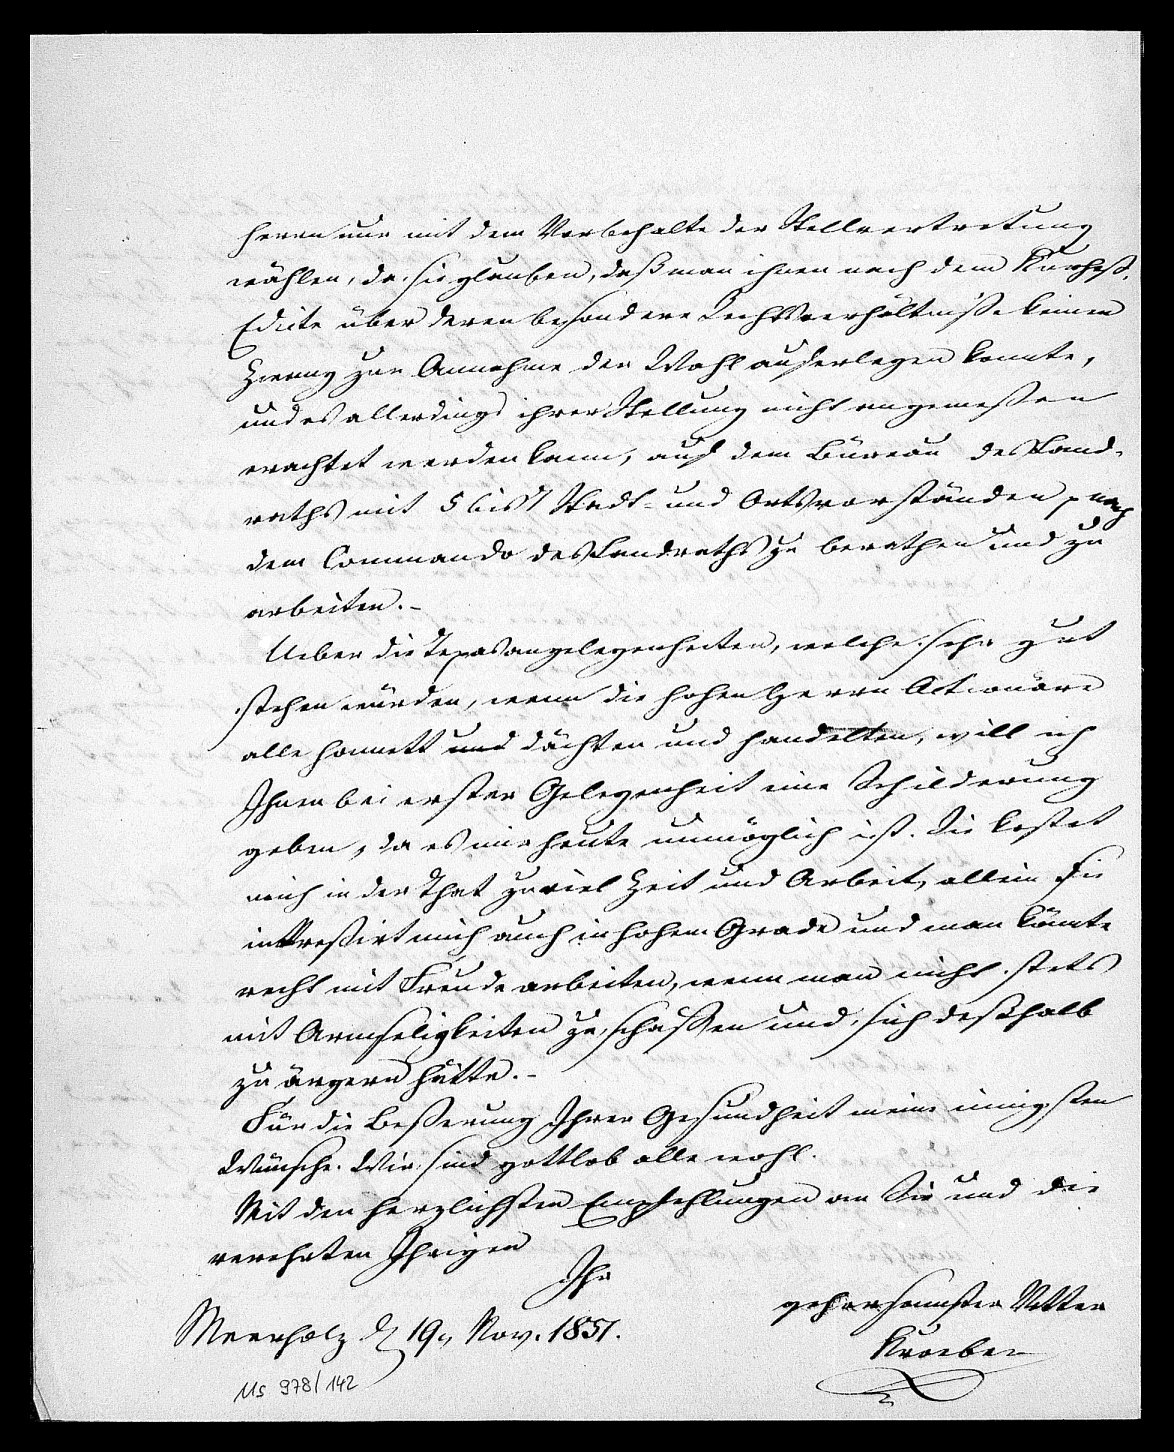 herrn nur mit dem Vorbehalte der Stellvertretung
wählen, da sie glauben, daß man ihnen nach dem Kurheß.
Edicte über deren besondere Rechtsverhältniße keinen
Zwang zur Annahme der Wahl auferlegen konnte,
und es allerdings ihrer Stellung nicht angemeßen
erachtet werden kann, auf dem Büreau des Land-
raths mit 5 bis 7 Stadt- und Ortsvorständen p nach
dem Commando des Landraths zu berathen und zu
arbeiten. –
Ueber die Texasangelegenheiten, welche sehr gut
stehen würden, wenn die hohen Herrn Actionäre
alle honnett und dächten und handelten, will ich
Ihnen bei erster Gelegenheit eine Schilderung
geben, da es mir heute unmöglich ist. Sie kostet
mich in der That zuviel Zeit und Arbeit, allein sie
intreßirt mich auch in hohem Grade und man könnte
recht mit Freude arbeiten, wenn man nicht stets
mit Armseligkeiten zu schaffen und sich deßhalb
zu ärgern hätte. –
Für die Beßerung Ihrer Gesundheit meine innigsten
Wünsche. Wir sind gottlob alle wohl.
Mit den herzlichsten Empfehlungen an Sie und die
verehrten Ihrigen
Ihr
gehorsamster Vetter
Meerholz d 19. Nov. 1851.
Kroeber
Ms 978/142